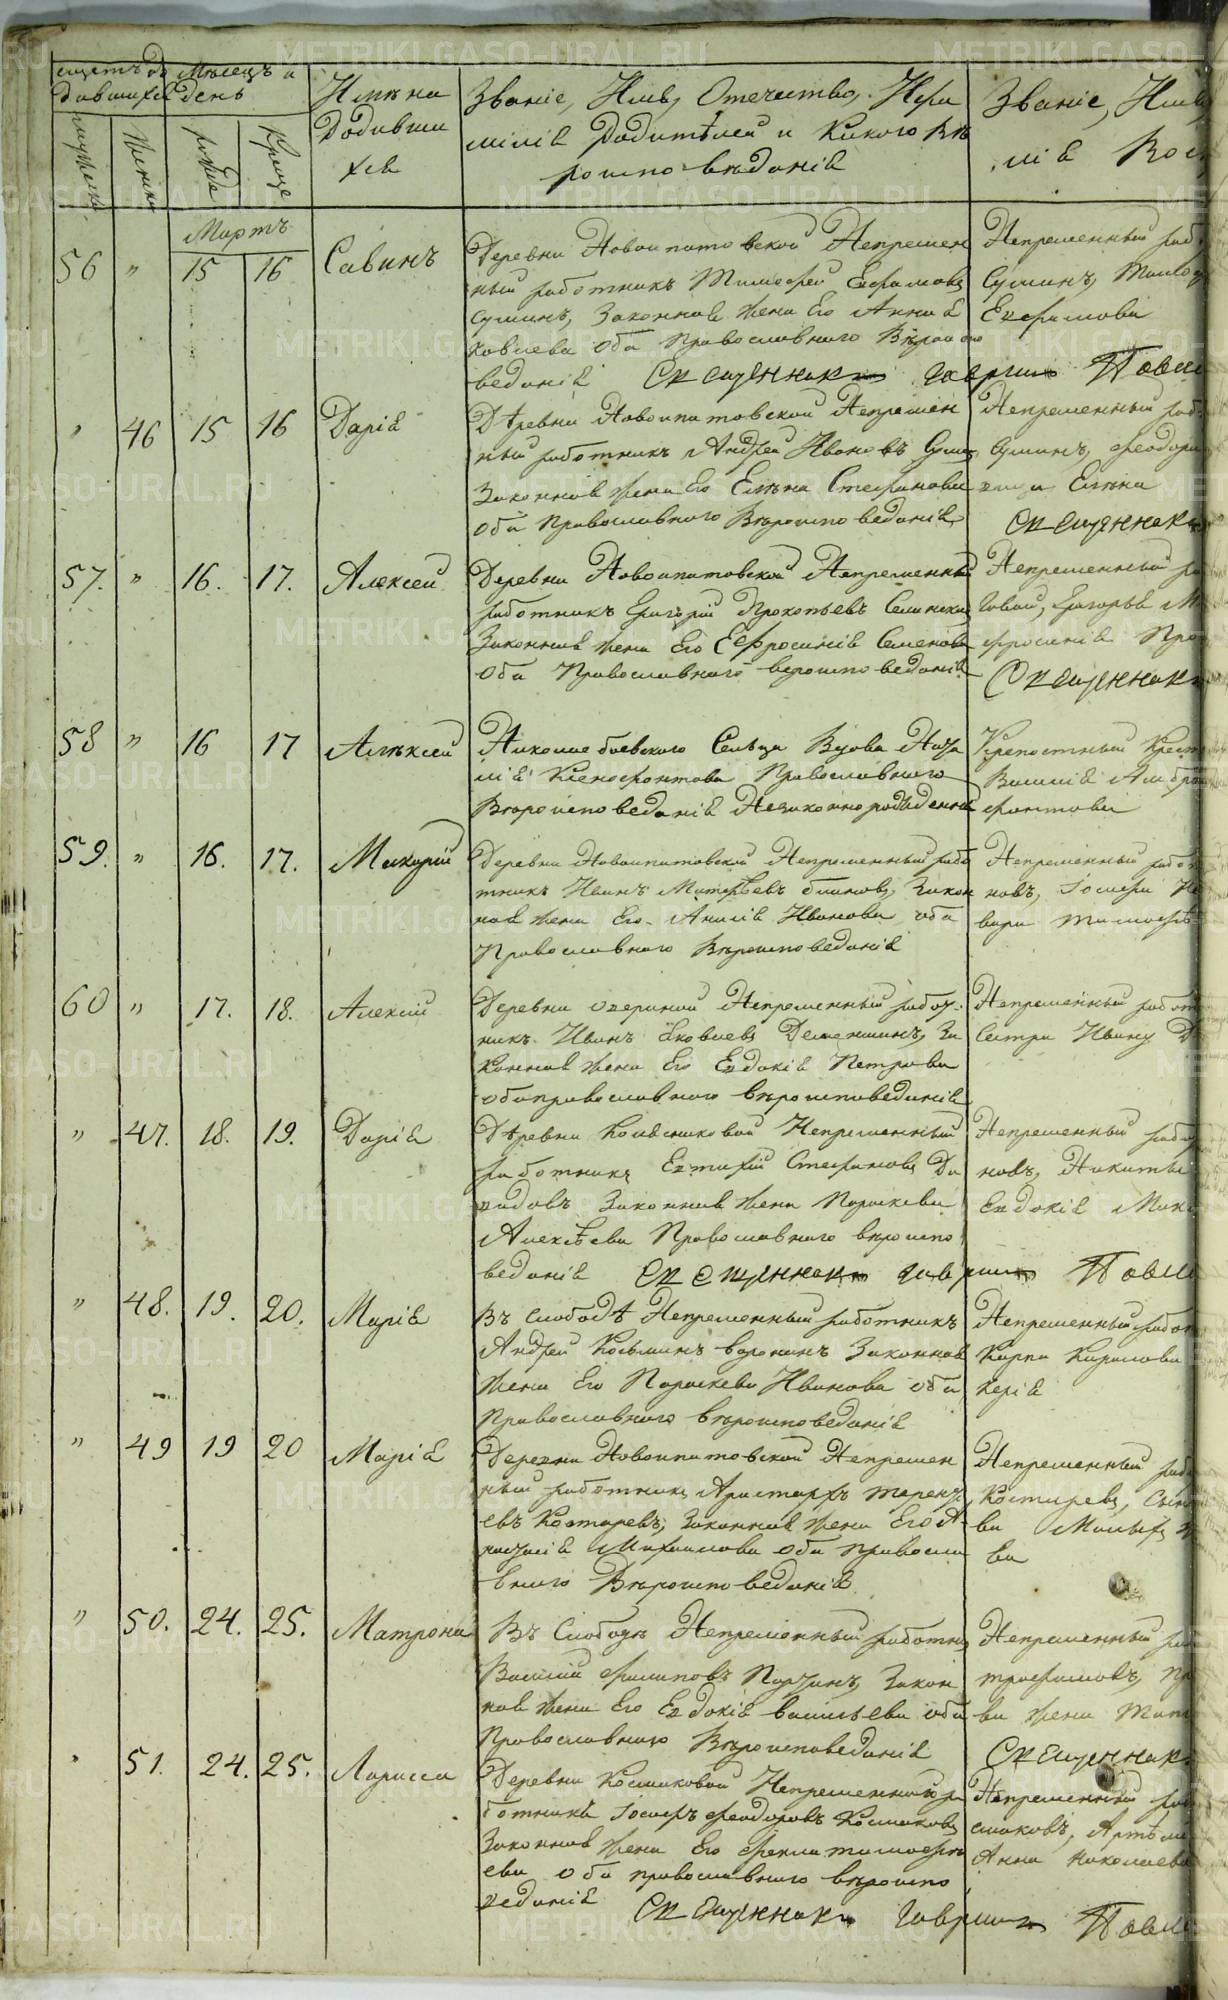 щетъ ро Мѣсецъ и
дившихся день
Имѣна
Родивши
хся
Званіе, Имя, Отечество, И фа
милія Родителей и Какого Вѣ
роисповѣданія
Званіе, Имя
милія Вос
мужеска
Женска
рожде
Креще
Мартъ
56 " 15 16 Савинъ
Деревни Новоипатовской Непремен
ный работникъ Тимофей Ефимовъ
Сушинъ, Законная жена Его Анна Я
ковлева оба Православнаго Вѣроиспо
веданія Священникъ Гавриилъ Повел
Непременный раб
Сушинъ,
Евфимова
" 46 15 16 Дарія
Деревни Новоипатовской Непремен
ный работникъ Андрей Ивановъ Суши
Законная жена Его Елѣна Стефанова
Оба Православнаго Вѣроисповеданія
Непременный раб
Сушинъ, Феодора
Елѣна
Священникъ
57. " 16. 17. Алексей
Деревни Новоипатовской Непременный
работникъ Григорій Прокопьевъ
Законная жена Его Ефросинія Семенова
Оба Православнаго вероисповеданія
Непременный ра
Григорья
фросинія Про
Священникъ
58 " 16 17 Алѣксей
Николаевского Сельца Вдова Ната
лія Ксенофонтова Православнаго
Вѣроисповеданія Незаконнорожденный
Крепостный Крест
Василія Амбро
фонтова
59. " 16. 17. Макарій
Деревни Новоипатовской Непременный рабо
тникъ Иванъ Матфѣевъ Блиновъ, Закон
ная жена Его Анисія Иванова оба
Православнаго Вѣроисповеданія
Непременный работ
новъ, Іосифа
вара Тимофѣ
60 " 17. 18. Алексій
Деревни Озериной Непременный работ
никъ Иванъ Яковлевъ Деменшинъ, За
конная жена Его Евдокія Петрова
оба православнаго вѣроисповеданія
Непременный работ
Сестра Ивану Д
" 47. 18. 19. Дарія
Деревни Колясниковой Непременный
работникъ Евтихій Стефановъ Да
видовъ Законная жена Параскева
Алексѣева Православнаго вѣроиспо
веданія Священникъ Гавриилъ Повел
Непременный рабо
новъ, Никиты
Евдокія
" 48. 19. 20. Марія
Въ слободѣ Непременный работникъ
Андрей Косьминъ Воронинъ Законная
жена Его Параскева Иванова оба
Православнаго вѣроисповеданія
Непременный работ
Карпа Кирилова
керія
" 49 19 20 Марія
Деревни Новоипатовской Непремен
ный работникъ Аристархъ Терент
евъ Костаревъ, Законная жена Его А
настасія Михаилова оба Правосла
внаго Вѣроисповеданія
Непременный раб
Костарева, Сын
ва
ва
" 50. 24. 25. Матрона
Въ Слободѣ Непременный работни
Василій Филиповъ Паршинъ, Закон
ная жена Его Евдокія Васильева оба
Православнаго Вѣроисповеданія
Непременный ра
трофимовъ, Пр
ва жена
Священникъ
" 51. 24. 25. Лариса
Деревни Космаковой Непременный ра
ботникъ Іосифъ Феодоровъ Космаковъ
Законная жена Его Фекла Тимофѣ
ева оба православнаго вѣроиспо
веданія Священникъ Гавриилъ Повел
Непременный раб
смаковъ, Артѣми
Анна Николаева
METRIKI.GASO-URAL.RU